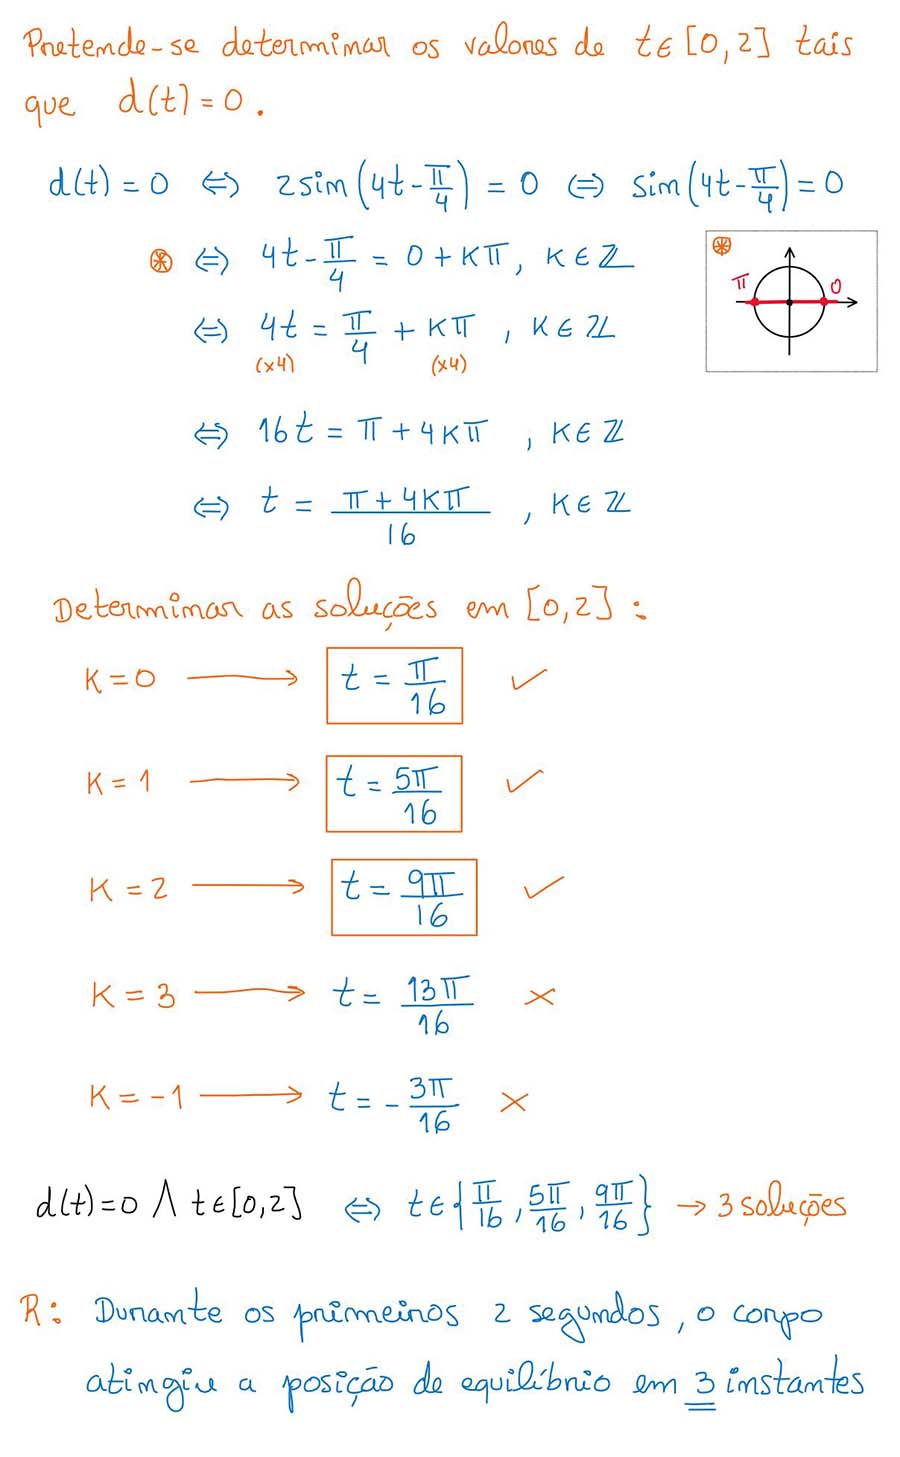 Pretende-se determinar os valores de t∈[0,2] tais
que d(t)=0.
d(t)=0 ⇔ 2sin(4t-π/4)=0 ⇔ sin(4t-π/4)=0
⊛ ⇔ 4t-π/4=0+kπ, k∈ℤ
⊛
π 0
⇔ 4t=π/4+kπ, k∈ℤ
(×4) (×4)
⇔ 16t=π+4kπ, k∈ℤ
⇔ t=(π+4kπ)/16, k∈ℤ
Determinar as soluções em [0,2]:
k=0 → t=π/16 ✓
k=1 → t=5π/16 ✓
k=2 → t=9π/16 ✓
k=3 → t=13π/16 ×
k=-1 → t=-3π/16 ×
d(t)=0 ∧ t∈[0,2] ⇔ t∈{π/16, 5π/16, 9π/16} → 3 soluções
R: Durante os primeiros 2 segundos, o corpo
atingiu a posição de equilíbrio em 3 instantes